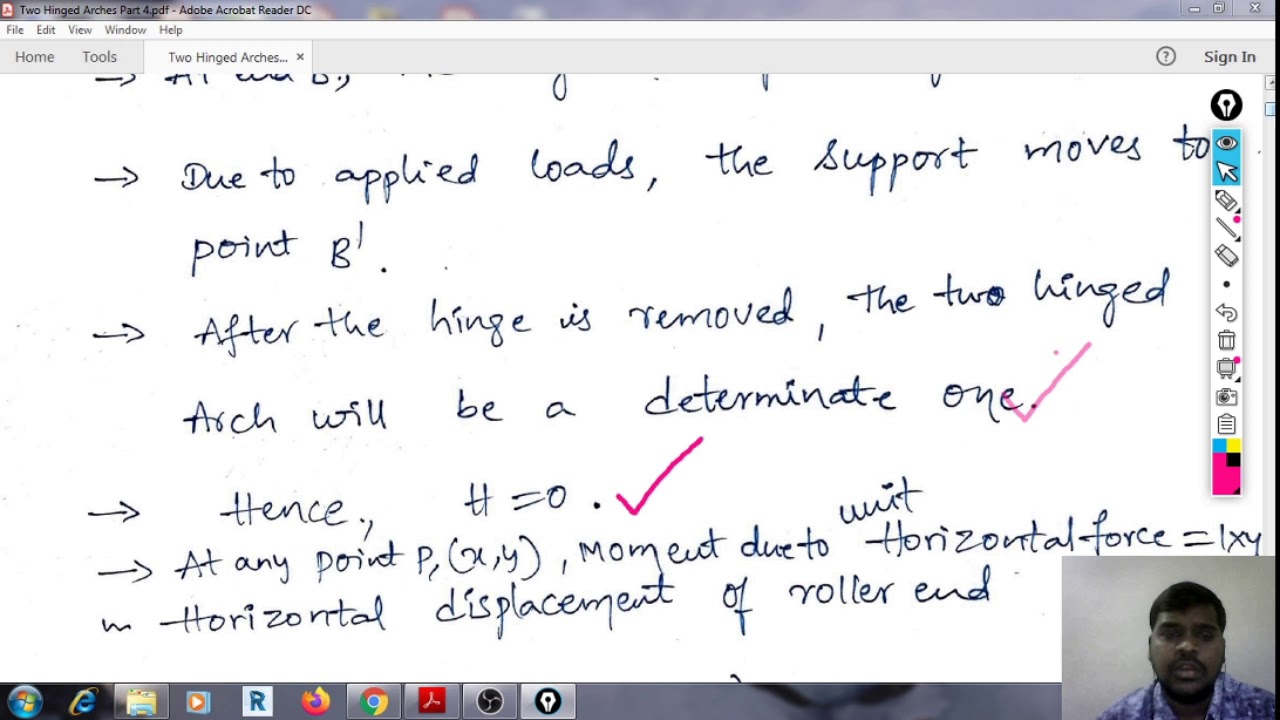 Two Hinged Arches Part 4.pdf - Adobe Acrobat Reader DC
File Edit View Window Help
Home Tools Two Hinged Arches... × ? Sign In
→ Due to applied loads, the support moves to
point B'.
→ After the hinge is removed, the two hinged
Arch will be a determinate one.
→ Hence, H = 0.
unit
→ At any point P, (x,y), Moment due to Horizontal force = 1xy
Horizontal displacement of roller end